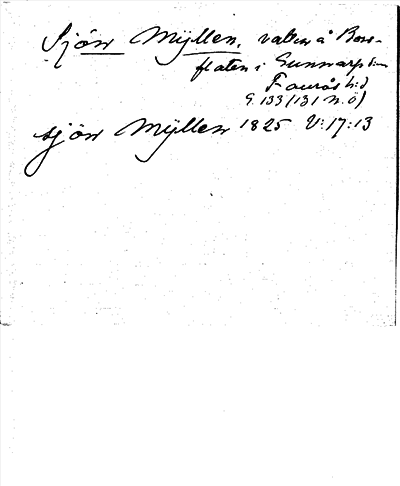 Sjön Myllen, vatten å Bos-
flaten i Gunnarp sn
Faurås hd
G. 133 (131 n.ö)
sjön Myllen 1825 V:17:13